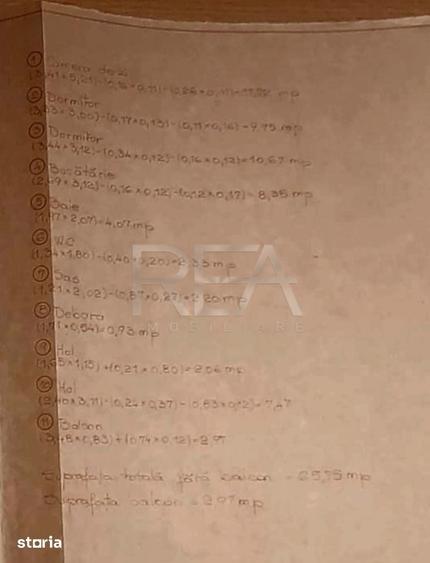 ① Camera de zi
(3,41×5,21)-(0,16×0,11)-(0,26×0,11)=17,72 mp
② Dormitor
(3,33×3,00)-(0,17×0,13)-(0,11×0,16)=9,95 mp
③ Dormitor
(3,44×3,12)-(0,34×0,12)-(0,16×0,12)=10,67 mp
④ Bucătărie
(2,69×3,12)-(0,16×0,12)-(0,12×0,17)=8,35 mp
⑤ Baie
(1,97×2,07)=4,07 mp
⑥ WC
(1,34×1,80)-(0,40×0,20)=2,33 mp
⑦ Sas
(1,21×2,02)-(0,87×0,27)=2,20 mp
⑧ Debara
(1,71×0,54)=0,93 mp
⑨ Hol
(1,65×1,15)+(0,21×0,80)=2,06 mp
⑩ Hol
(2,40×3,71)-(0,24×0,37)-(0,83×0,12)=7,47
⑪ Balcon
(3,48×0,83)+(0,74×0,12)=2,97
Suprafața totală fără balcon = 65,75 mp
Suprafața balcon = 2,97 mp
REA
IMOBILIARE
storia